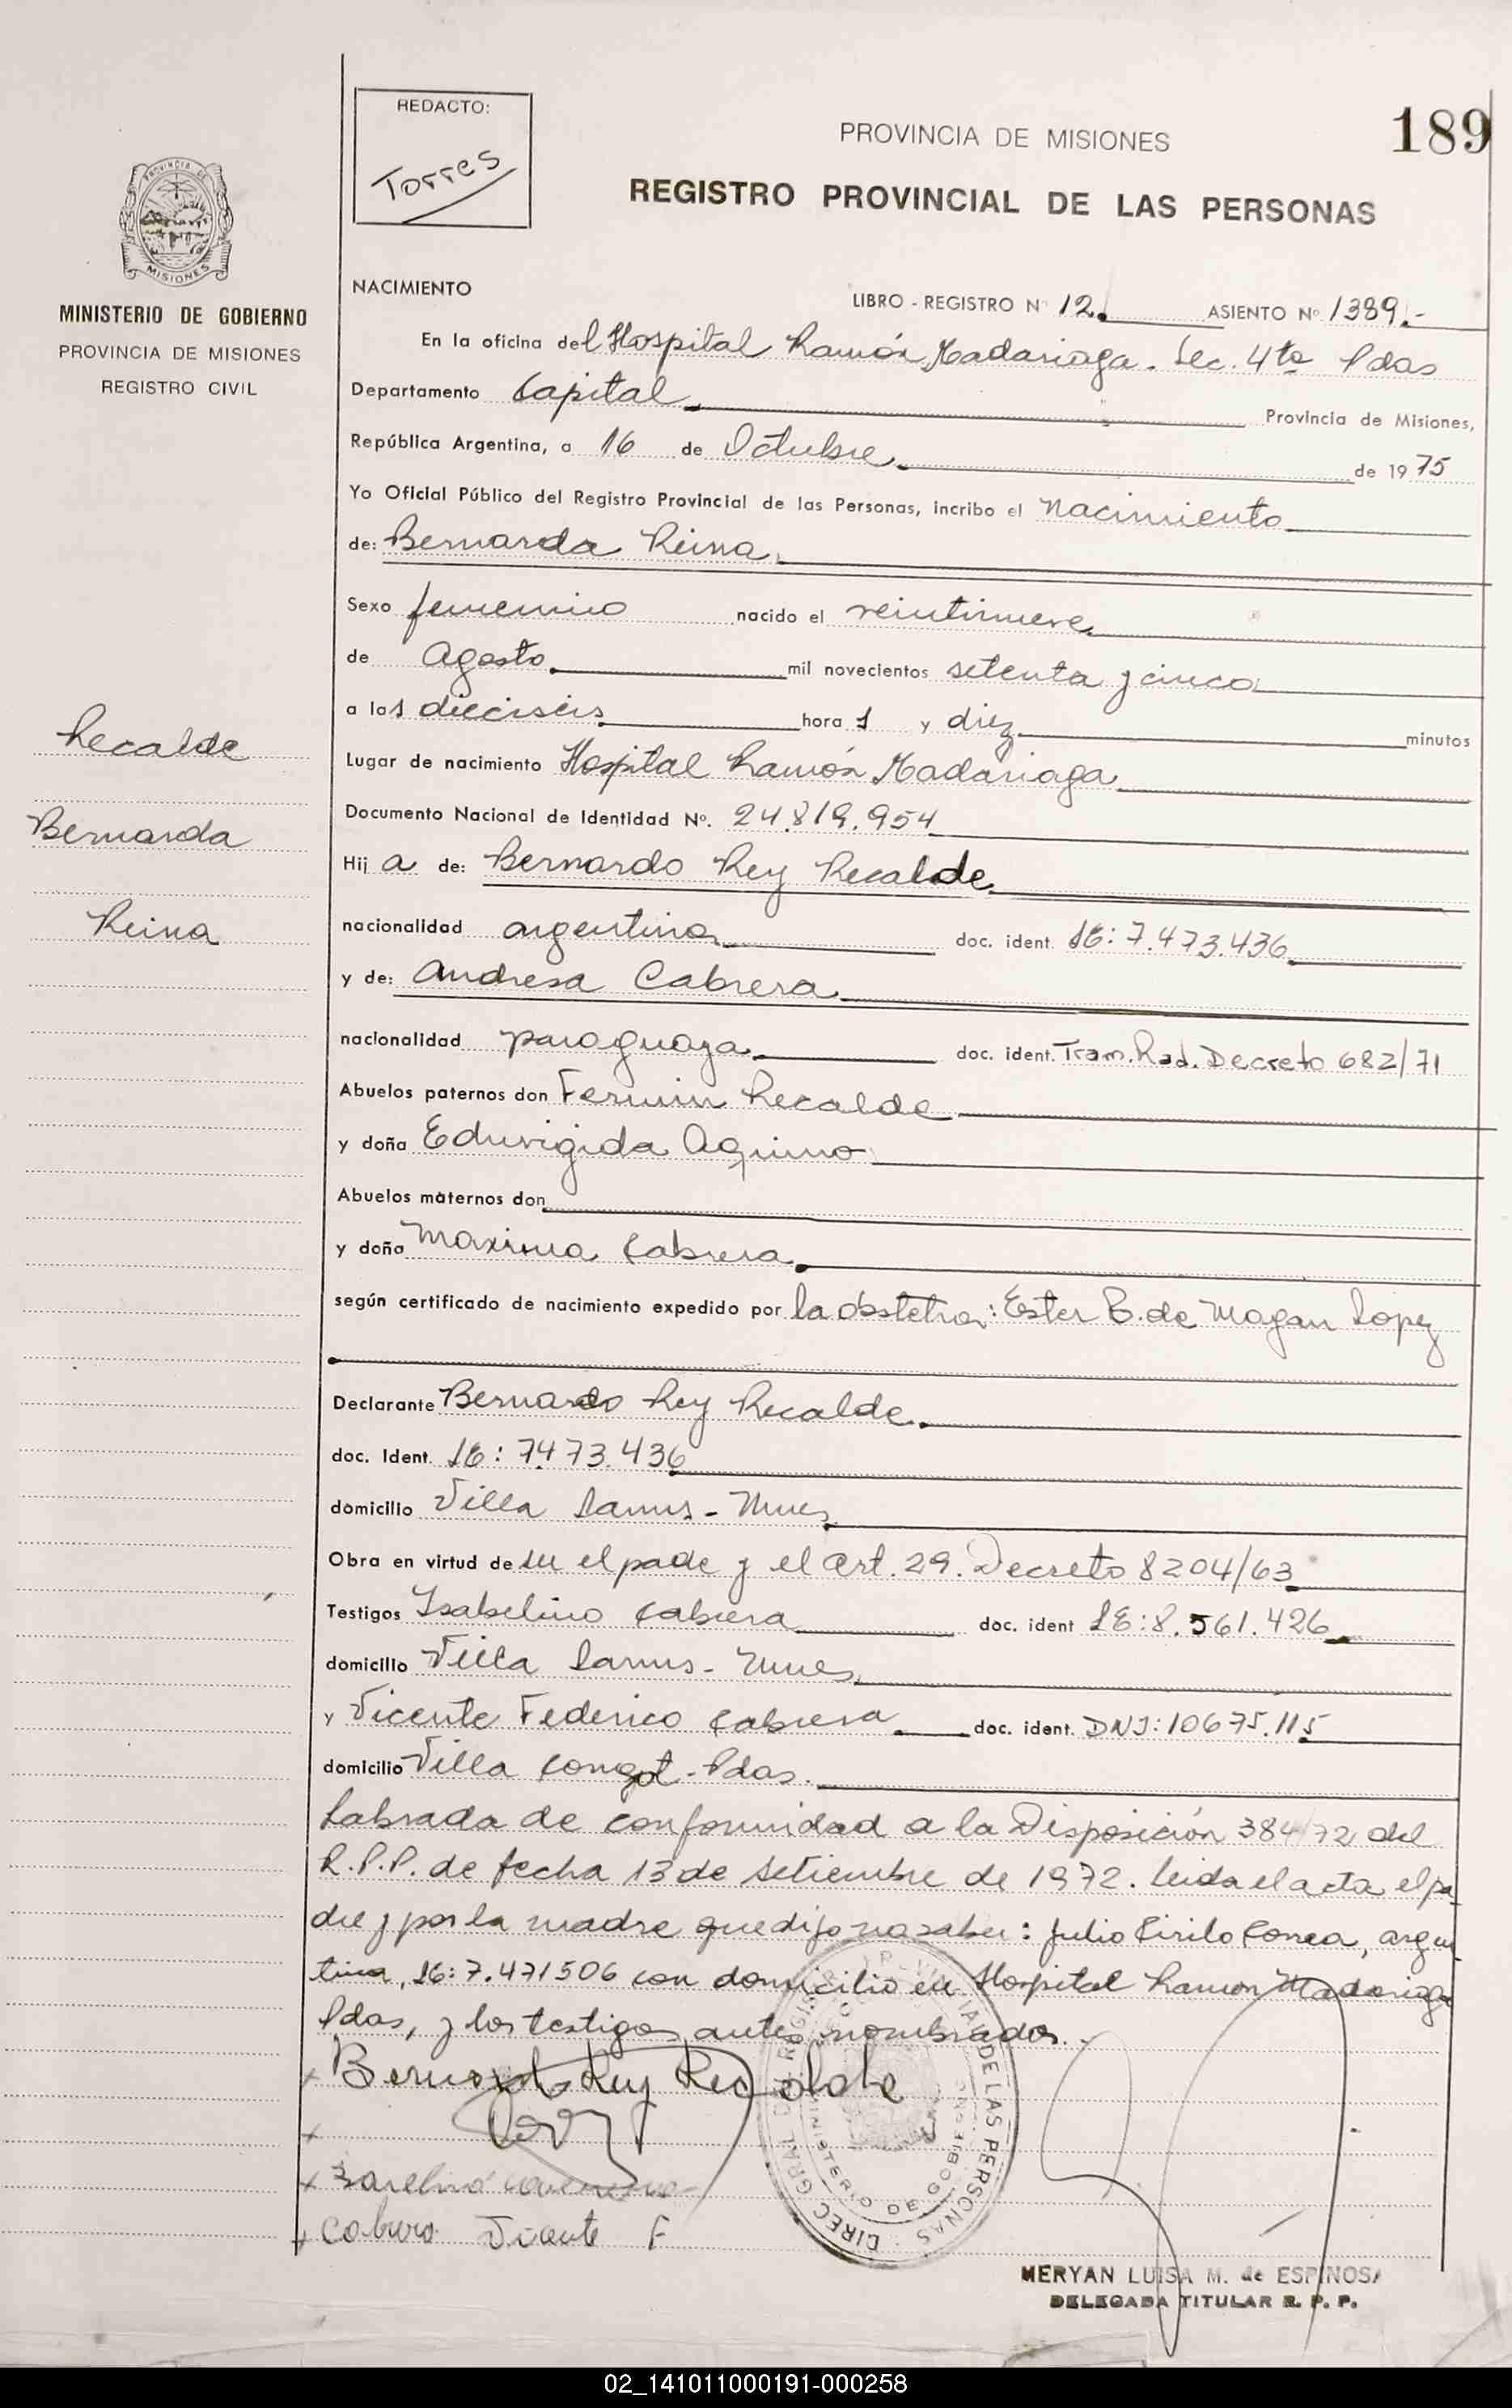 REDACTO:
Torres
189
PROVINCIA DE MISIONES
REGISTRO PROVINCIAL DE LAS PERSONAS
PROVINCIA DE
MISIONES
MINISTERIO DE GOBIERNO
PROVINCIA DE MISIONES
REGISTRO CIVIL
Recalde
Bernarda
Reina
NACIMIENTO
LIBRO - REGISTRO Nº 12. ASIENTO Nº 1389.-
En la oficina del Hospital Ramón Madariaga. Sec. 4ta Pdas
Departamento Capital Provincia de Misiones,
República Argentina, a 16 de Octubre de 1975
Yo Oficial Público del Registro Provincial de las Personas, incribo el nacimiento
de: Bernarda Reina
Sexo femenino nacido el veintinueve
de Agosto mil novecientos setenta y cinco
a las dieciseis hora s y diez minutos
Lugar de nacimiento Hospital Ramón Madariaga
Documento Nacional de Identidad Nº. 24.819.954
Hij a de: Bernardo Rey Recalde
nacionalidad argentina doc. ident. LE: 7.473.436
y de: Andresa Cabrera
nacionalidad paraguaya doc. ident. Tram. Rad. Decreto 682/71
Abuelos paternos don Fermin Recalde
y doña Eduvigida Aquino
Abuelos maternos don
y doña Maxima Cabrera
según certificado de nacimiento expedido por la obstetra: Ester B. de Magan Lopez
Declarante Bernardo Rey Recalde
doc. Ident. LE: 7473.436
domicilio Villa Lanus - Mnes
Obra en virtud de su el padre y el Art. 29. Decreto 8204/63
Testigos Isabelino Cabrera doc. ident LE: 8.561.426
domicilio Villa Lanus - Mnes
y Vicente Federico Cabrera doc. ident. DNI: 10675.115
domicilio Villa - Pdas.
Labrada de conformidad a la Disposición 384/72 del
R.P.P. de fecha 13 de Setiembre de 1972. Leida el acta el pa
dre y por la madre que dijo no saber: Julio Cirilo Correa, argen
tina, LE: 7.471506 con domicilio en Hospital Ramon Madariaga
Pdas, y los testigos antes nombrados.
x Bernardo Rey Recalde
x
x
x Cabrera Vicente F
DIREC. GRAL DEL REGIST. PROVINCIAL DE LAS PERSONAS
MINISTERIO DE GOBIERNO
MERYAN LUISA M. de ESPINOSA
DELEGADA TITULAR R. P. P.
02_141011000191-000258